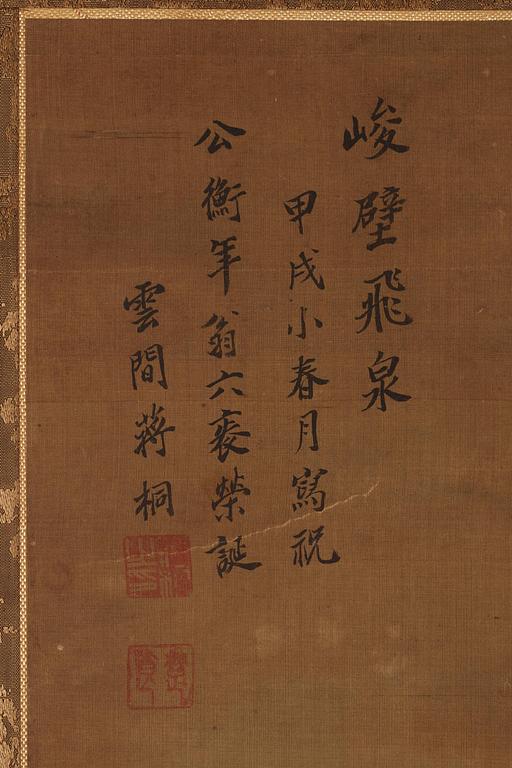 峻壁飛泉
甲戌小春月寫祝
公衡年翁六袠榮誕
雲間蔣桐